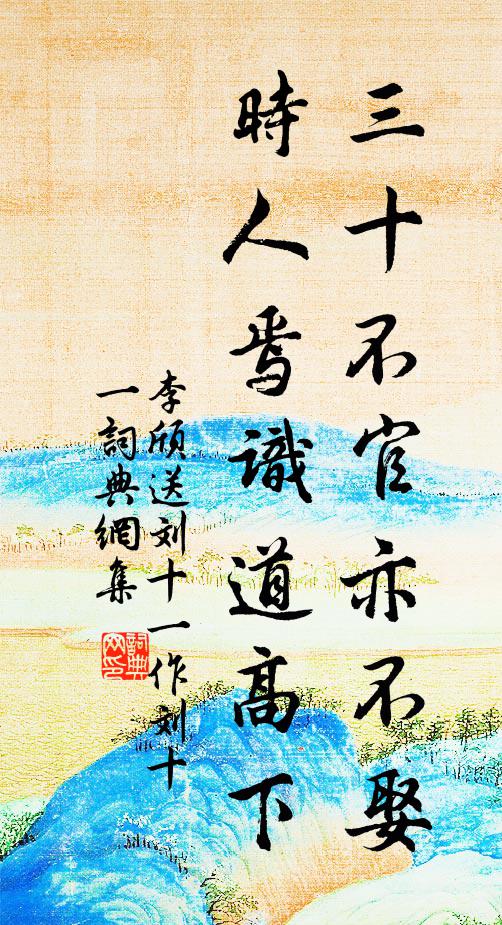 三十不官亦不娶
時人焉識道高下
李頎送刘十一作刘十
一詞典網集